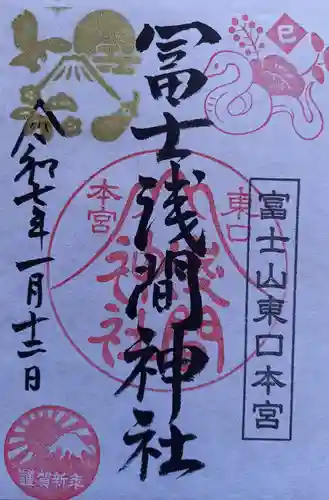 巳
冨士浅間神社
富士山東口本宮
東口
本宮
浅間
神社
令和七年一月十二日
謹賀新年